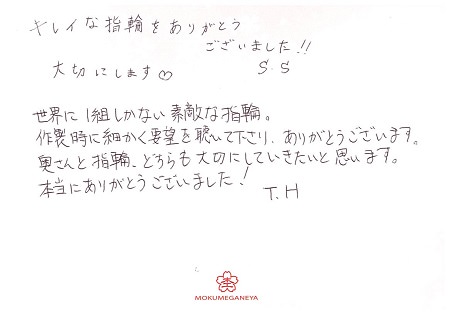 キレイな指輪をありがとう
ございました!!
大切にします♡
S.S
世界に1組しかない素敵な指輪。
作製時に細かく要望を聴いて下さり、ありがとうございます。
奥さんと指輪、どちらも大切にしていきたいと思います。
本当にありがとうございました!
T.H
MOKUMEGANEYA